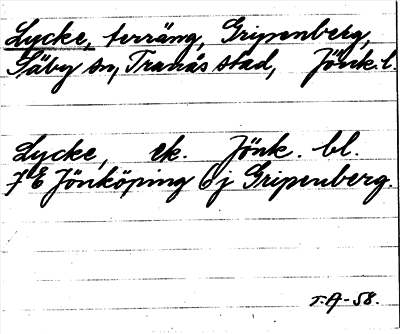 Lycke, terräng, Gripenberg,
Säby sn, Tranås stad, Jönk.l.
Lycke, ek. Jönk. bl.
7E Jönköping 6j Gripenberg.
T.A-58.